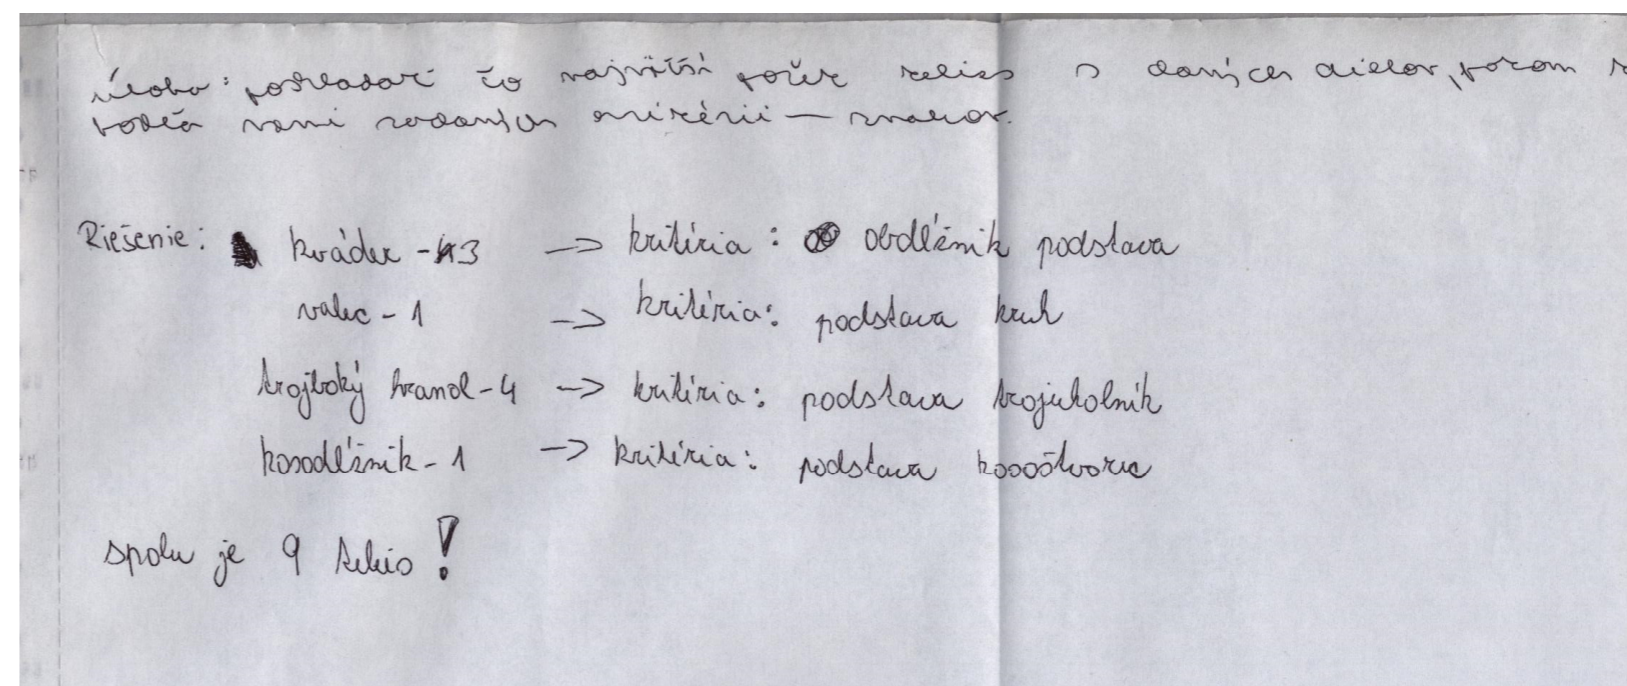 Úloha: poskladať čo najväčší počet telies s daných dielov, potom
podľa vami zadaných kritérií – znakov.
Riešenie: kváder - 3 -> kritéria: obdĺžnik podstava
valec - 1 -> kritéria: podstava kruh
trojboký hranol - 4 -> kritéria: podstava trojuholník
kosodĺžnik - 1 -> kritéria: podstava kosoštvorec
spolu je 9 telies!